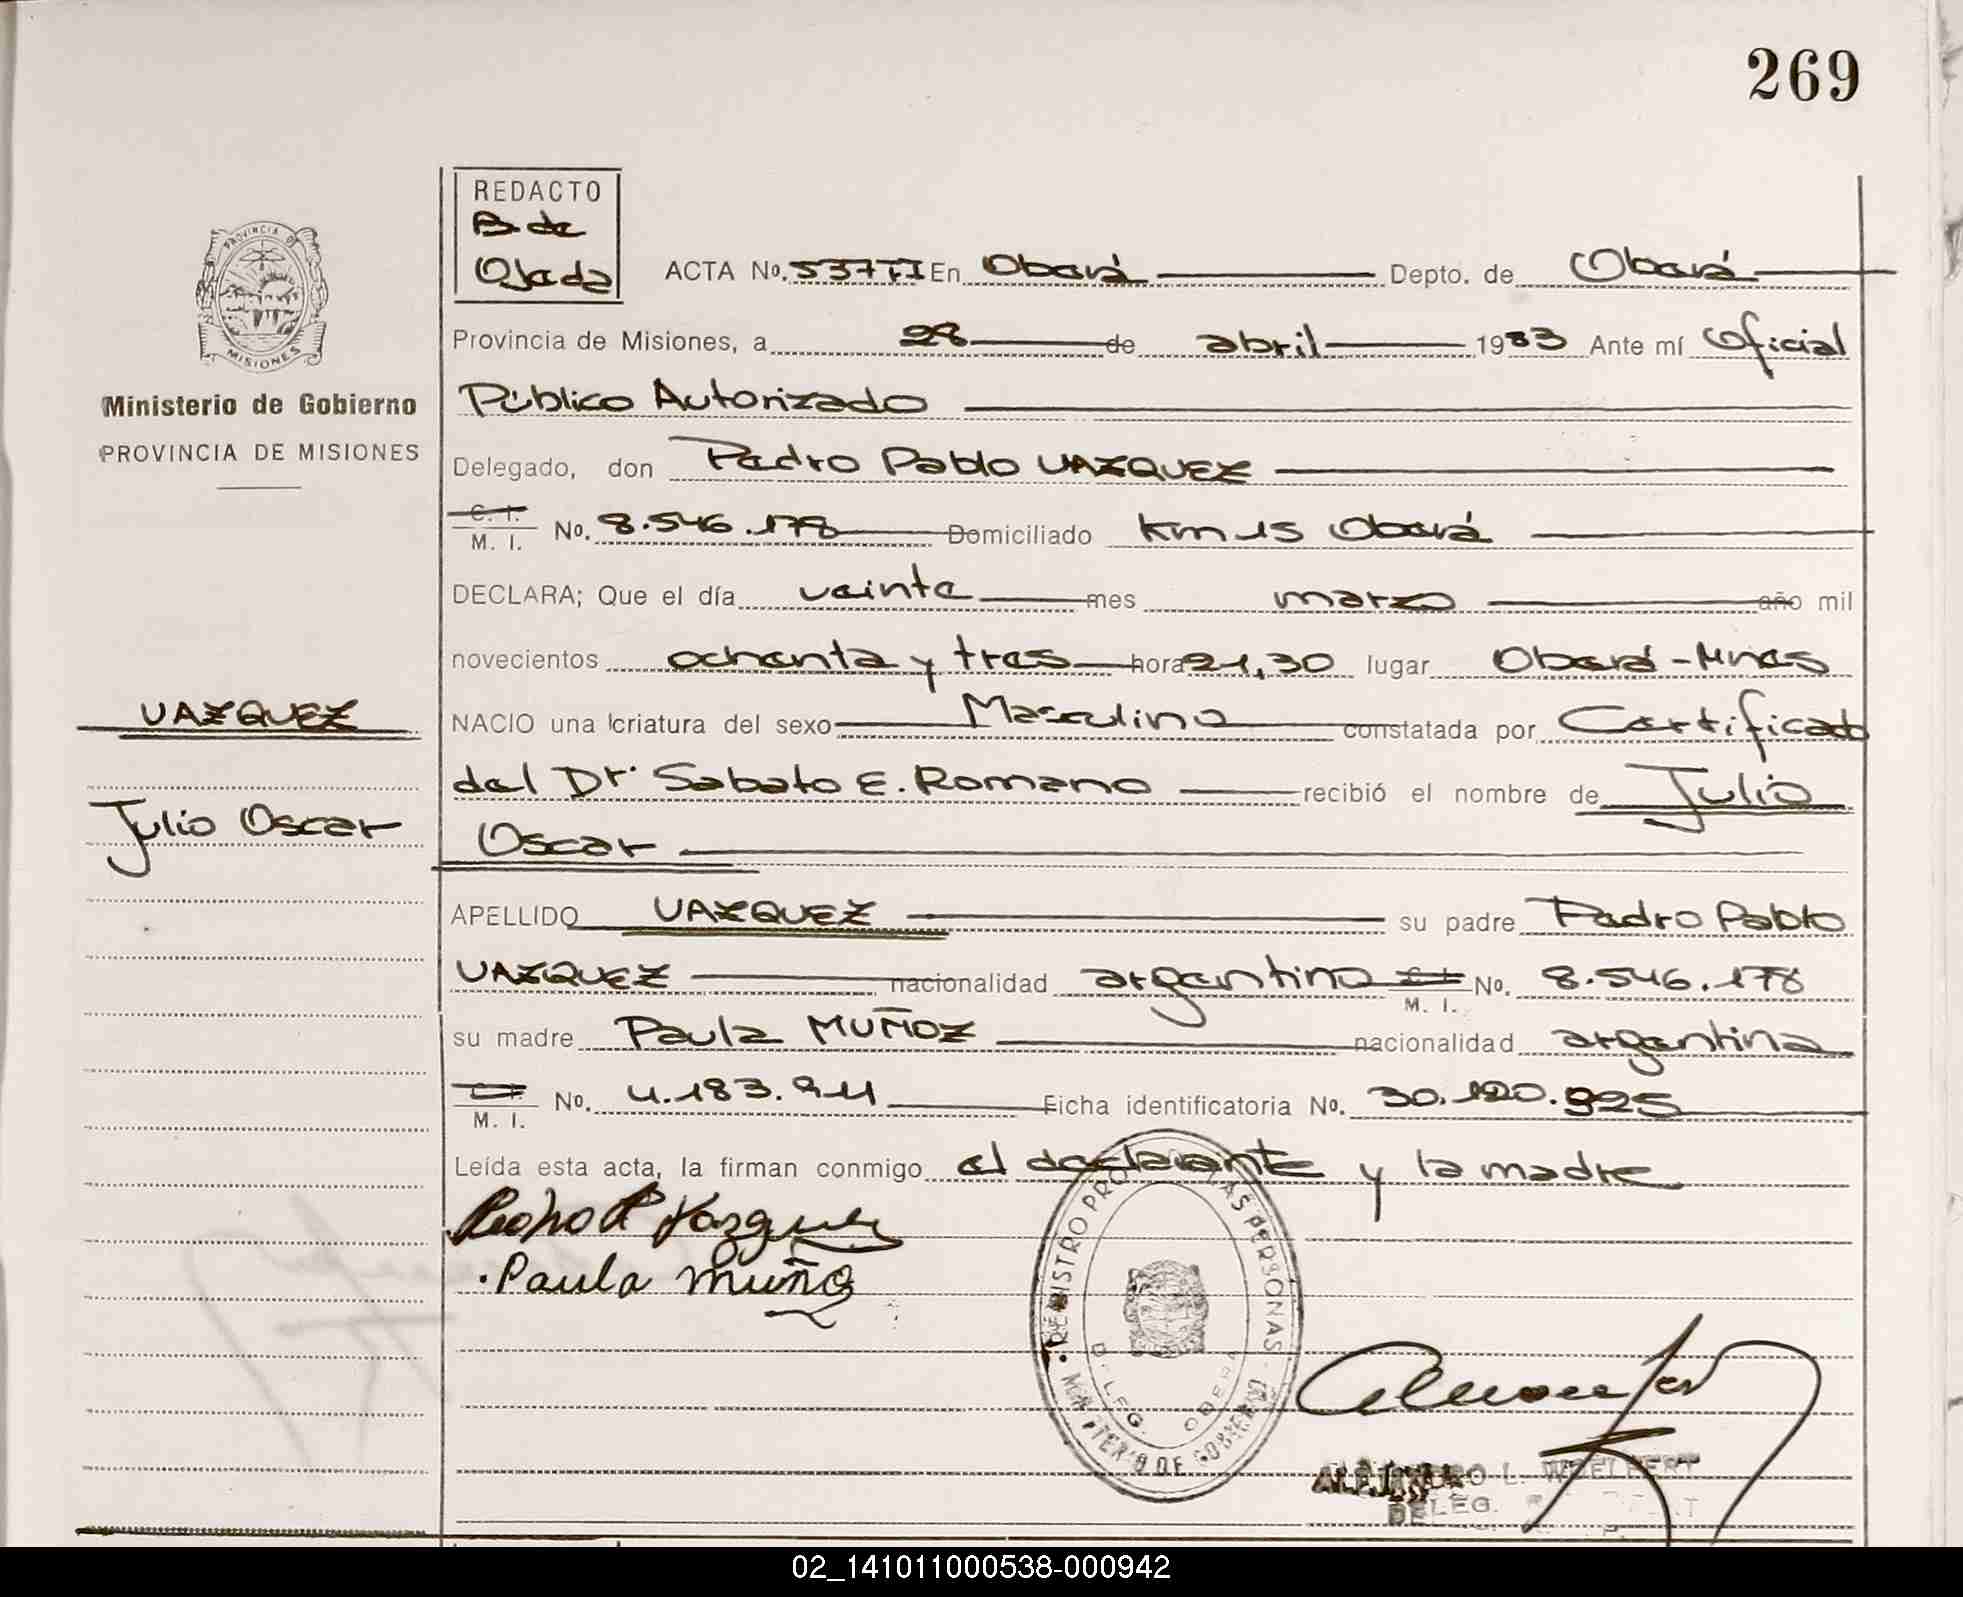 269
REDACTO
B. de
Ojeda
PROVINCIA DE
MISIONES
Ministerio de Gobierno
PROVINCIA DE MISIONES
VAZQUEZ
Julio Oscar
ACTA No. 537TI En Oberá Depto. de Oberá
Provincia de Misiones, a 28 de abril 1983 Ante mí Oficial
Público Autorizado
Delegado, don Pedro Pablo VAZQUEZ
C. I.
M. I. No. 8.546.178 Domiciliado Km 15 Oberá
DECLARA; Que el día veinte mes marzo año mil
novecientos ochenta y tres hora 21,30 lugar Oberá - Mnes
NACIO una criatura del sexo Masculino constatada por Certificado
del Dr. Sabato E. Romano recibió el nombre de Julio
Oscar
APELLIDO VAZQUEZ su padre Pedro Pablo
VAZQUEZ nacionalidad argentino C. I. No. 8.546.178
M. I.
su madre Paula MUÑOZ nacionalidad argentina
C. I.
M. I. No. 4.183.911 Ficha identificatoria No. 30.120.925
Leída esta acta, la firman conmigo el declarante y la madre
Pedro P Vazquez
Paula Muñoz
REGISTRO PRO LAS PERSONAS
DELEG. OBERA
MINISTERIO DE GOBIERNO
ALEJANDRO L. WOELFERT
DELEG.
02_141011000538-000942